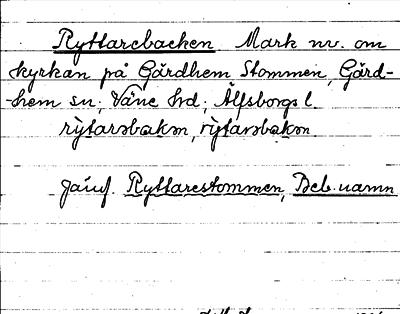 Ryttarebacken Mark nv. om
kyrkan på Gärdhem Stommen, Gärd-
-hem sn; Väne hd; Älfsborgs l.
rýtarəbakən, rýtarsbakən
Jämf. Ryttarestommen, Beb.namn